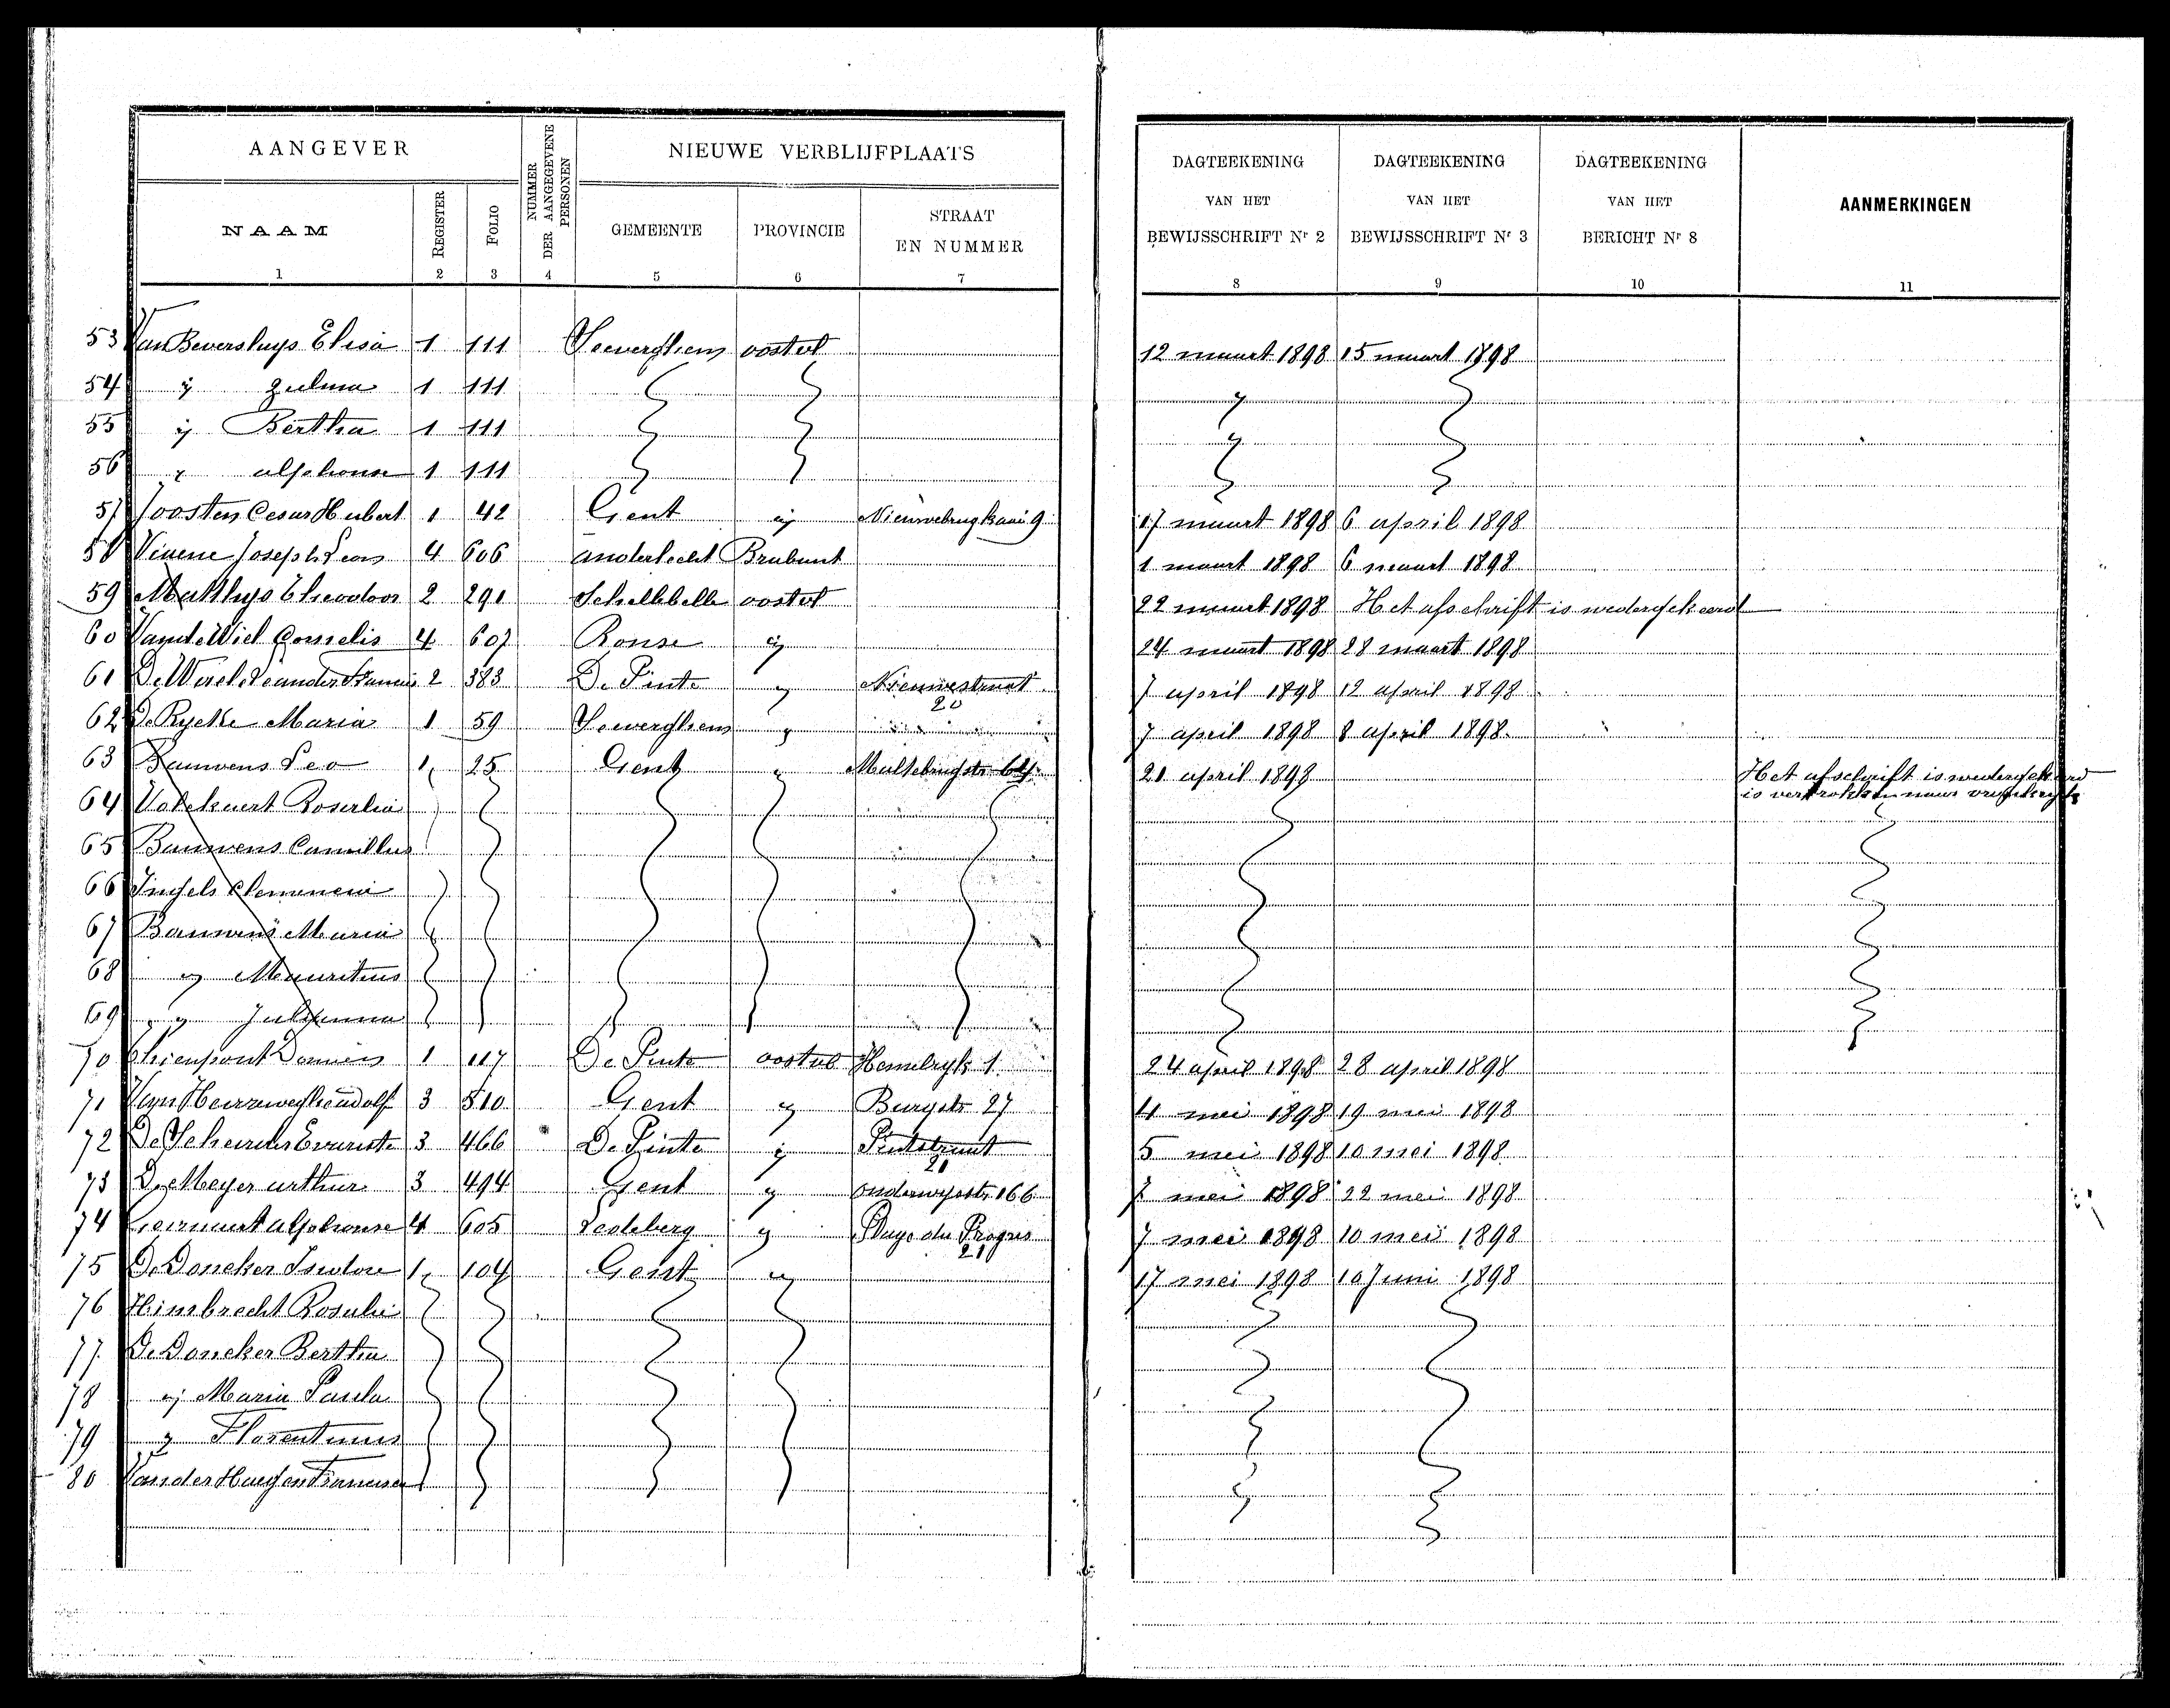 AANGEVER
NUMMER DER AANGEGEVENE PERSONEN
NIEUWE VERBLIJFPLAATS
NAAM
REGISTER
FOLIO
GEMEENTE
PROVINCIE
STRAAT EN NUMMER
DAGTEEKENING VAN HET BEWIJSSCHRIFT Nr 2
DAGTEEKENING VAN HET BEWIJSSCHRIFT Nr 3
DAGTEEKENING VAN HET BERICHT Nr 8
AANMERKINGEN
1 2 3 4 5 6 7 8 9 10 11
53 Van Beversluys Elisa 1 111 oostvl 12 maart 1898 15 maart 1898
54 ij Zulma 1 111
55 ij Bertha 1 111
56 alphonse 1 111
57 Joosten Cesar Hubert 1 42 Gent ij Nieuwebrugkaai 9 17 maart 1898 6 april 1898
58 Joseph Leon 4 606 anderlecht Brabant 1 maart 1898 6 maart 1898
59 Matthys Theodoor 2 291 Schellebelle oostvl 22 maart 1898 Het afschrift is wedergekeerd
60 Vande Wiel Cornelis 4 607 Ronse ij 24 maart 1898 28 maart 1898
61 2 383 De Pinte ij Nieuwestraat 20 7 april 1898 12 april 1898
62 De Rycke Maria 1 59 ij 7 april 1898 8 april 1898
63 Bauwens Leo 1 25 Gent ij 21 april 1898 Het afschrift is wedergekeerd
is vertrokken naar
64 Rosalia
65 Bauwens Camillus
66 Ingels
67 Bauwens Maria
68 ij Mauritius
69 ij
70 1 117 De Pinte oostvl 1 24 april 1898 28 april 1898
71 3 510 Gent ij Burgstr 27 4 mei 1898 19 mei 1898
72 Evariste 3 466 De Pinte ij Pintestraat 21 5 mei 1898 10 mei 1898
73 De Meyer arthur 3 494 Gent ij onderwijsstr 166 7 mei 1898 22 mei 1898
74 alphonse 4 605 Ledeberg ij du Progres 21 7 mei 1898 10 mei 1898
75 De Doncker Isidore 1 104 Gent ij 17 mei 1898 10 Juni 1898
76 Rosalie
77 De Doncker Bertha
78 ij Maria Paula
79 ij Florentinus
80 Van der Haegen